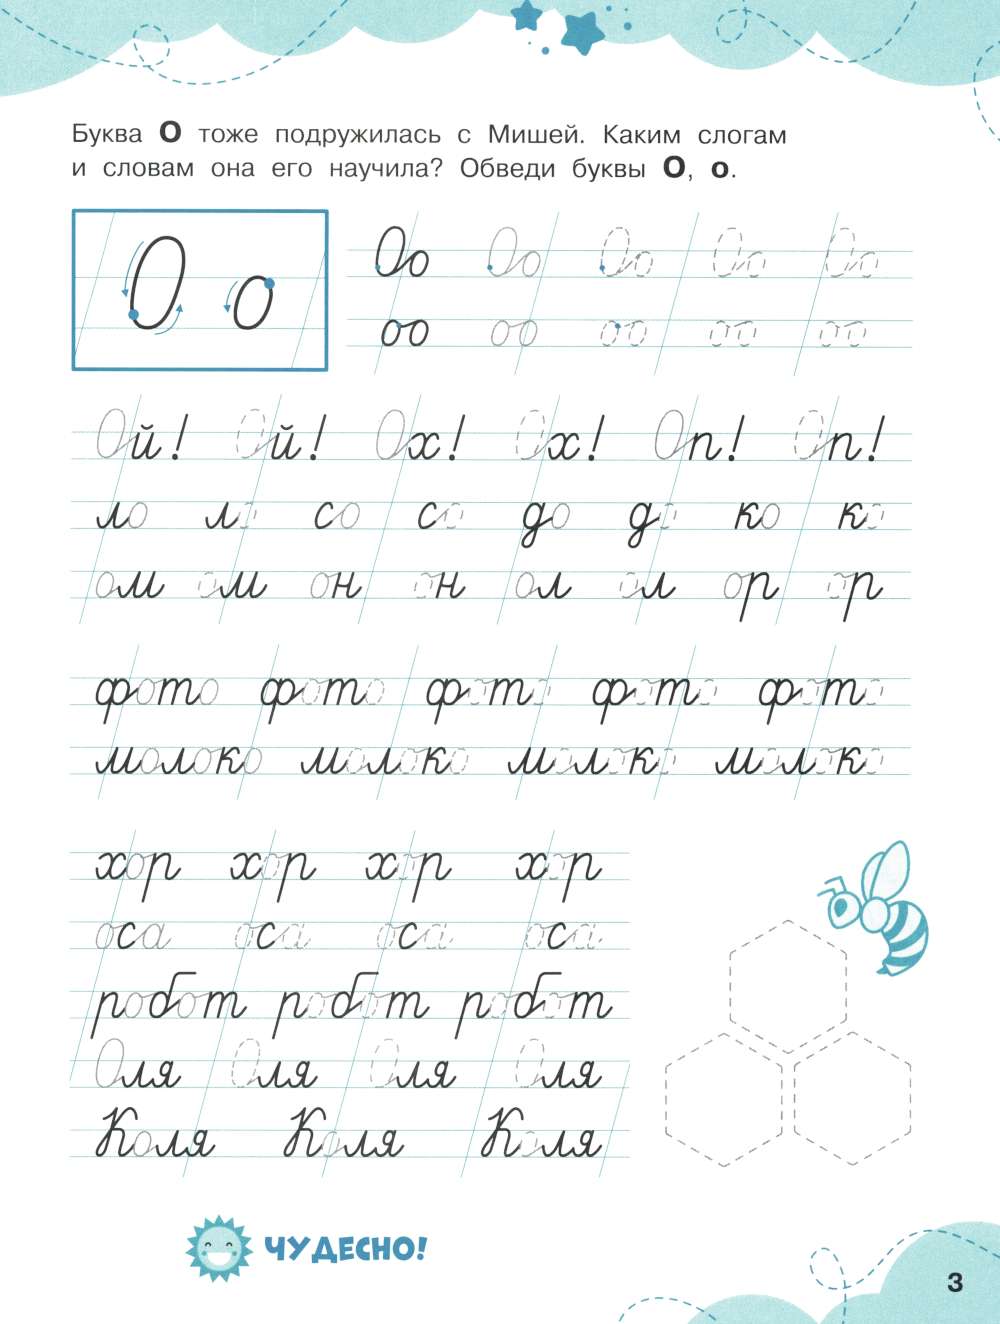 Буква О тоже подружилась с Мишей. Каким слогам
и словам она его научила? Обведи буквы О, о.
О о
Оо Оо Оо Оо Оо
оо оо оо оо оо
Ой! Ой! Ох! Ох! Оп! Оп!
ло ло со со до до ко ко
ом ом он он ол ол ор ор
фото фото фото фото фото
молоко молоко молоко молоко
хор хор хор хор
оса оса оса оса
робот робот робот
Оля Оля Оля Оля
Коля Коля Коля
ЧУДЕСНО!
3